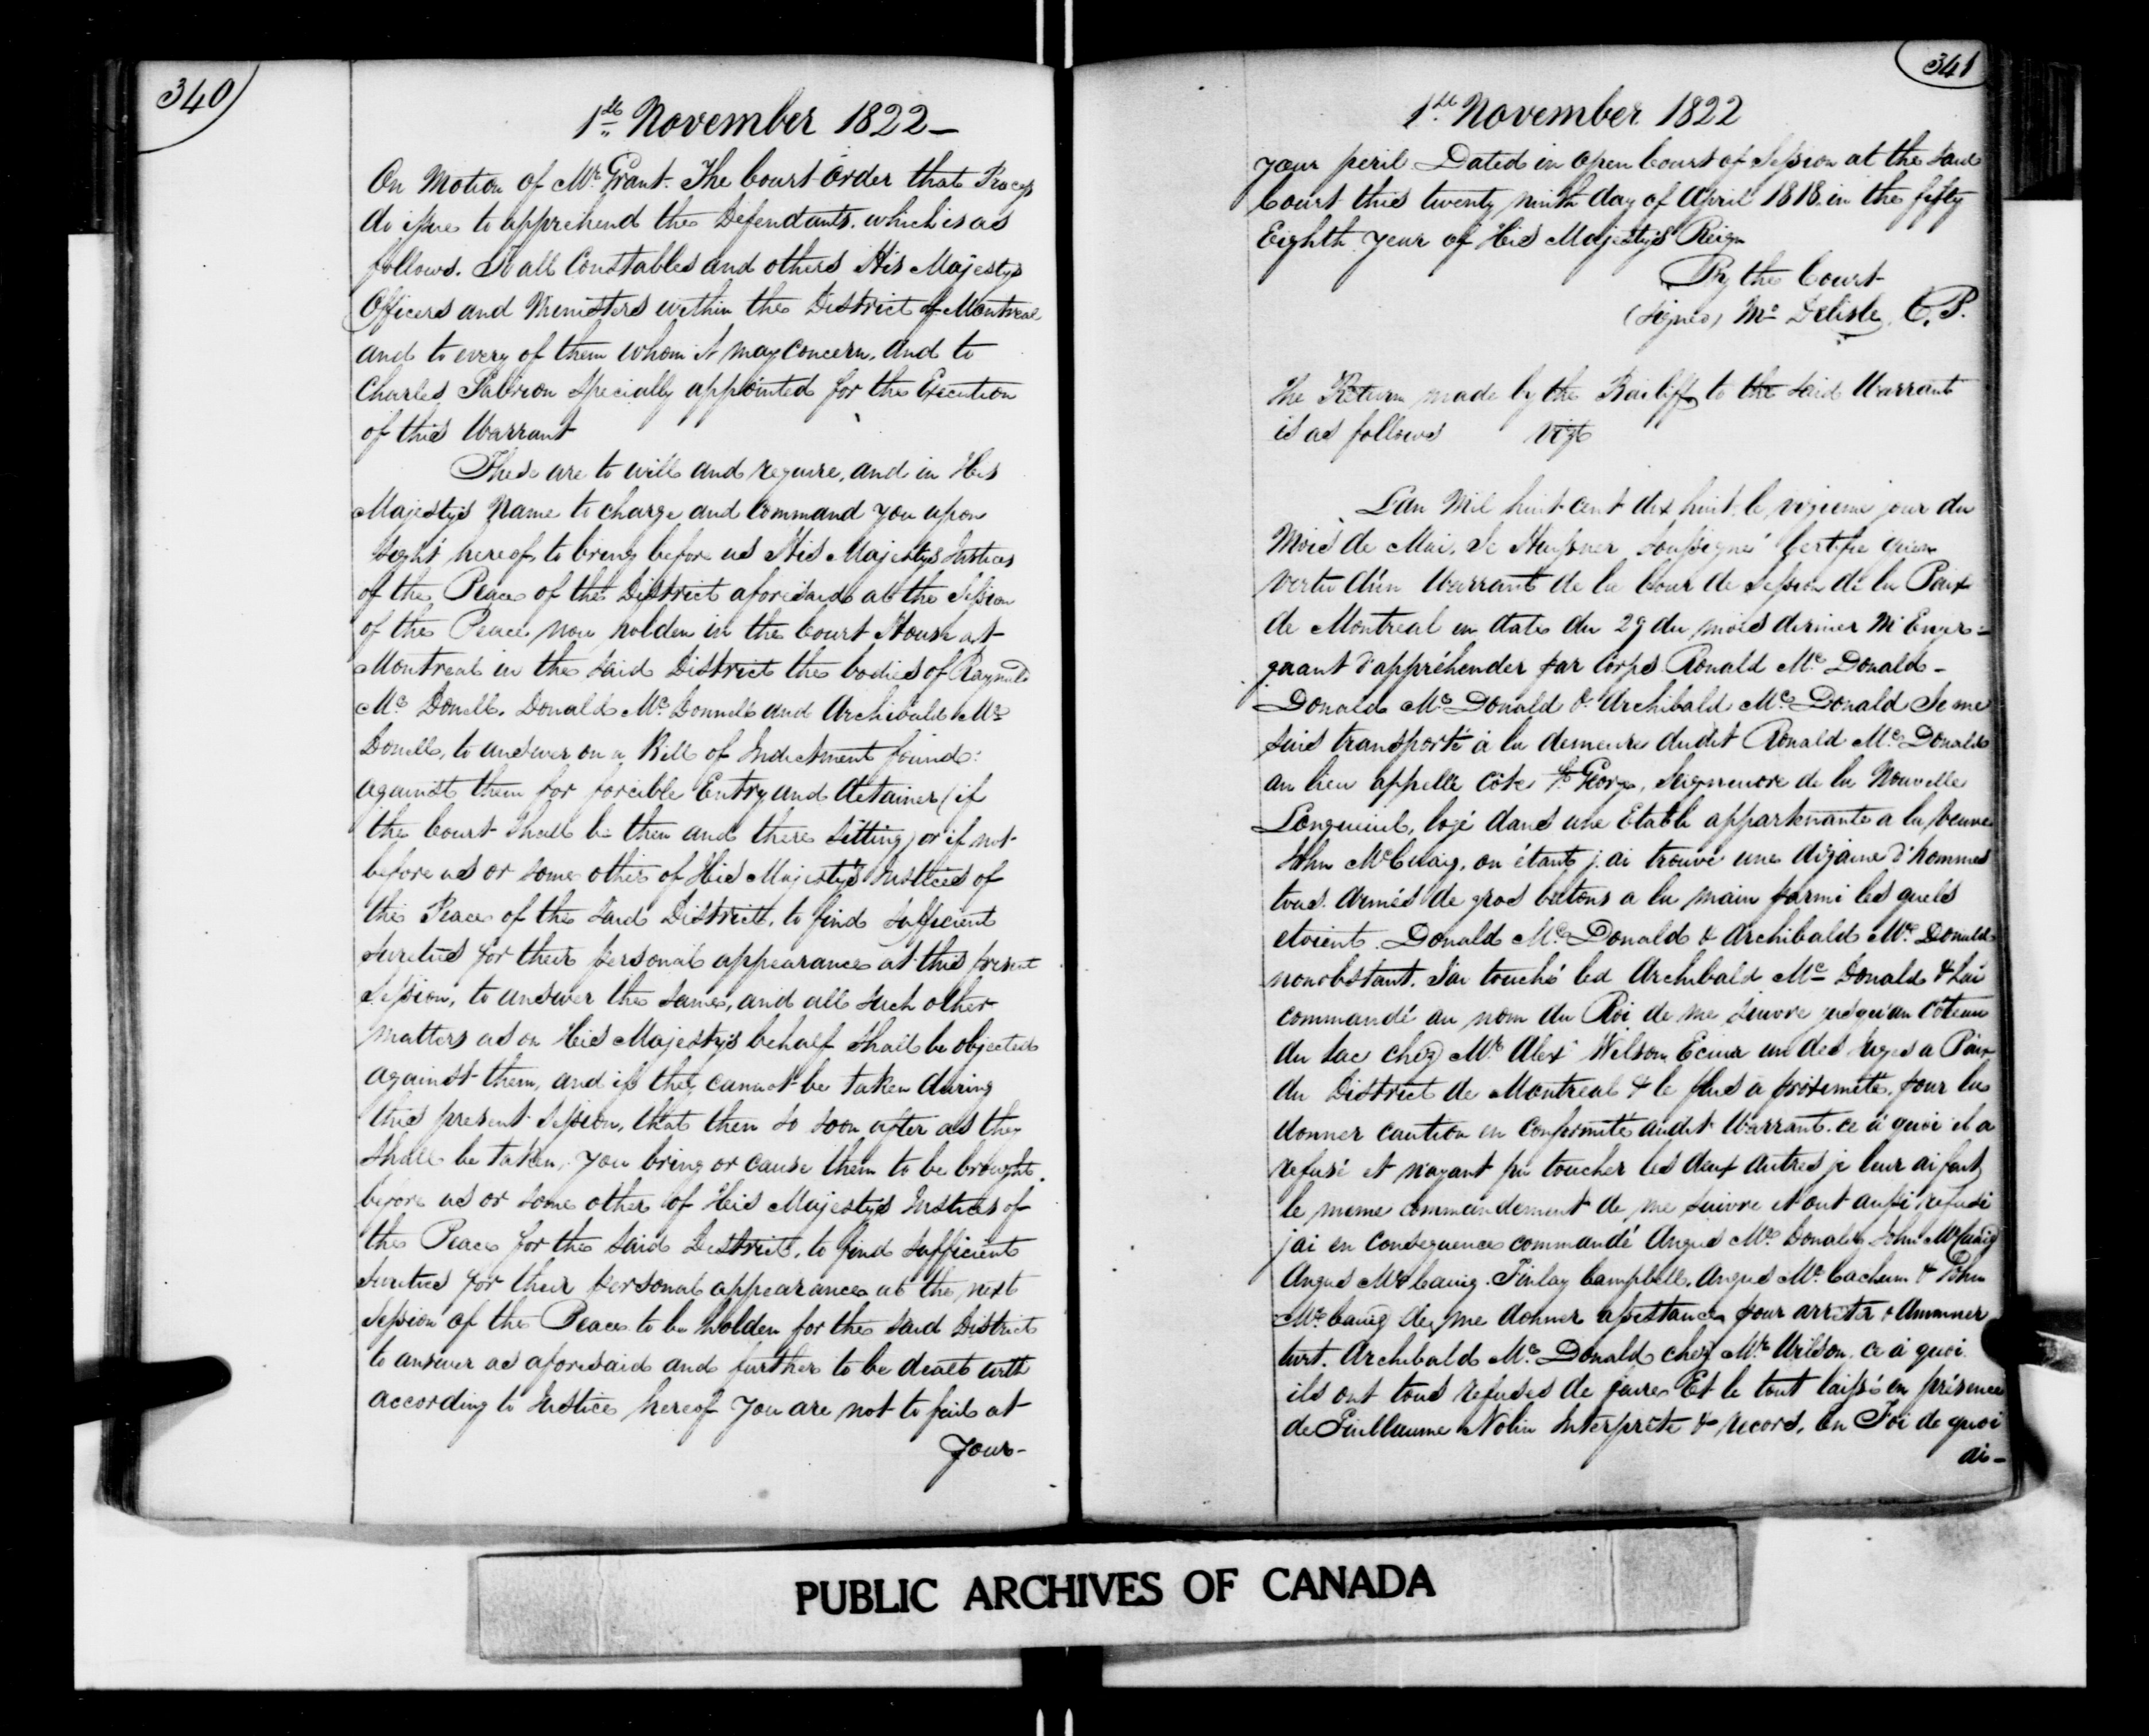 340
1st November 1822 —
On Motion of Mr. Grant. The Court order that Process
do issue to apprehend the Defendants. which is as
follows. To all Constables and others His Majestys
Officers and Ministers within the District of Montreal
and to every of them whom it may Concern, and to
Charles specially appointed for the Execution
of this Warrant
These are to will and require, and in His
Majesty's Name to charge and Command you upon
sight hereof to bring before us His Majestys Justices
of the Peace of the District aforesaid at the Session
of the Peace now holden in the Court House at
Montreal in the said District the bodies of Raynald
Mc Donell. Donald Mc Donnell and Archibald Mc
Donell, to answer on a Bill of Indictment found
against them for forcible Entry and detainer (if
the Court shall be then and there sitting) or if not
before us or some other of His Majesty's Justices of
the Peace of the said District, to find sufficient
sureties for their personal appearance at this present
Session, to answer the same, and all such other
matters as on His Majesty's behalf shall be objected
against them, and if they cannot be taken during
this present Session, that then so soon after as they
shall be taken, you bring or cause them to be brought
before us or some other of His Majesty's Justices of
the Peace for the said District, to find sufficient
sureties for their personal appearance at the next
Session of the Peace to be holden for the said District
to answer as aforesaid and further to be dealt with
according to Justice hereof You are not to fail at
Your —
341
1st November 1822
your peril Dated in Open Court of Session at the said
Court this twenty ninth day of April 1818 in the fifty
Eighth Year of His Majesty's Reign
By the Court
(Signed) Delisle, C. P.
The Return made by the Bailiff to the said Warrant
is as follows Vizt
L'an Mil huit cent dix huit, le vizieme jour du
Mois de Mai, Je Huissier soussigné Certifie qu'en
vertu d'un Warrant de la Cour de Session de la Paix
de Montreal en date du 29 du mois dernier M'Enjoi-
gnant d'appréhender par Corps Ronald Mc Donald -
Donald Mc Donald & Archibald Mc Donald Je me
suis transporté à la demeure dudit Ronald Mc Donald
au lieu appellé Côte St George, Seigneurie de la Nouvelle
Longueuil, logé dans une Etable appartenante a la Veuve
John McCuaig, ou étant j'ai trouvé une dizaine d'hommes
tous armés de gros batons a la main parmi les quels
etoient Donald Mc Donald & Archibald Mc Donald
nonobstant. J'ai touché led Archibald Mc Donald & lui
commandé au nom du Roi de me suivre jusqu'au Côteau
du Lac chez Mr Alexr Wilson Ecuier un des Juges a Paix
du District de Montreal & le plus à proximité, pour la
donner caution en Conformité audit Warrant. ce à quoi il a
refusé et n'ayant pu toucher les deux autres je leur ai fait
le meme commandement de me suivre et ont aussi refusé
j'ai en Consequence commandé Angus Mc Donald, John McCuaig
Angus McCuaig. Finlay Campbell, Angus Mc & John
McCuaig de me donner assistance pour arreter & Ammener
Archibald Mc Donald chez Mr Wilson ce à quoi
ils ont tous refusés de faire Et le tout laissé en présence
de Guillaume Nolin Interprète & record, En Foi de quoi
ai —
PUBLIC ARCHIVES OF CANADA